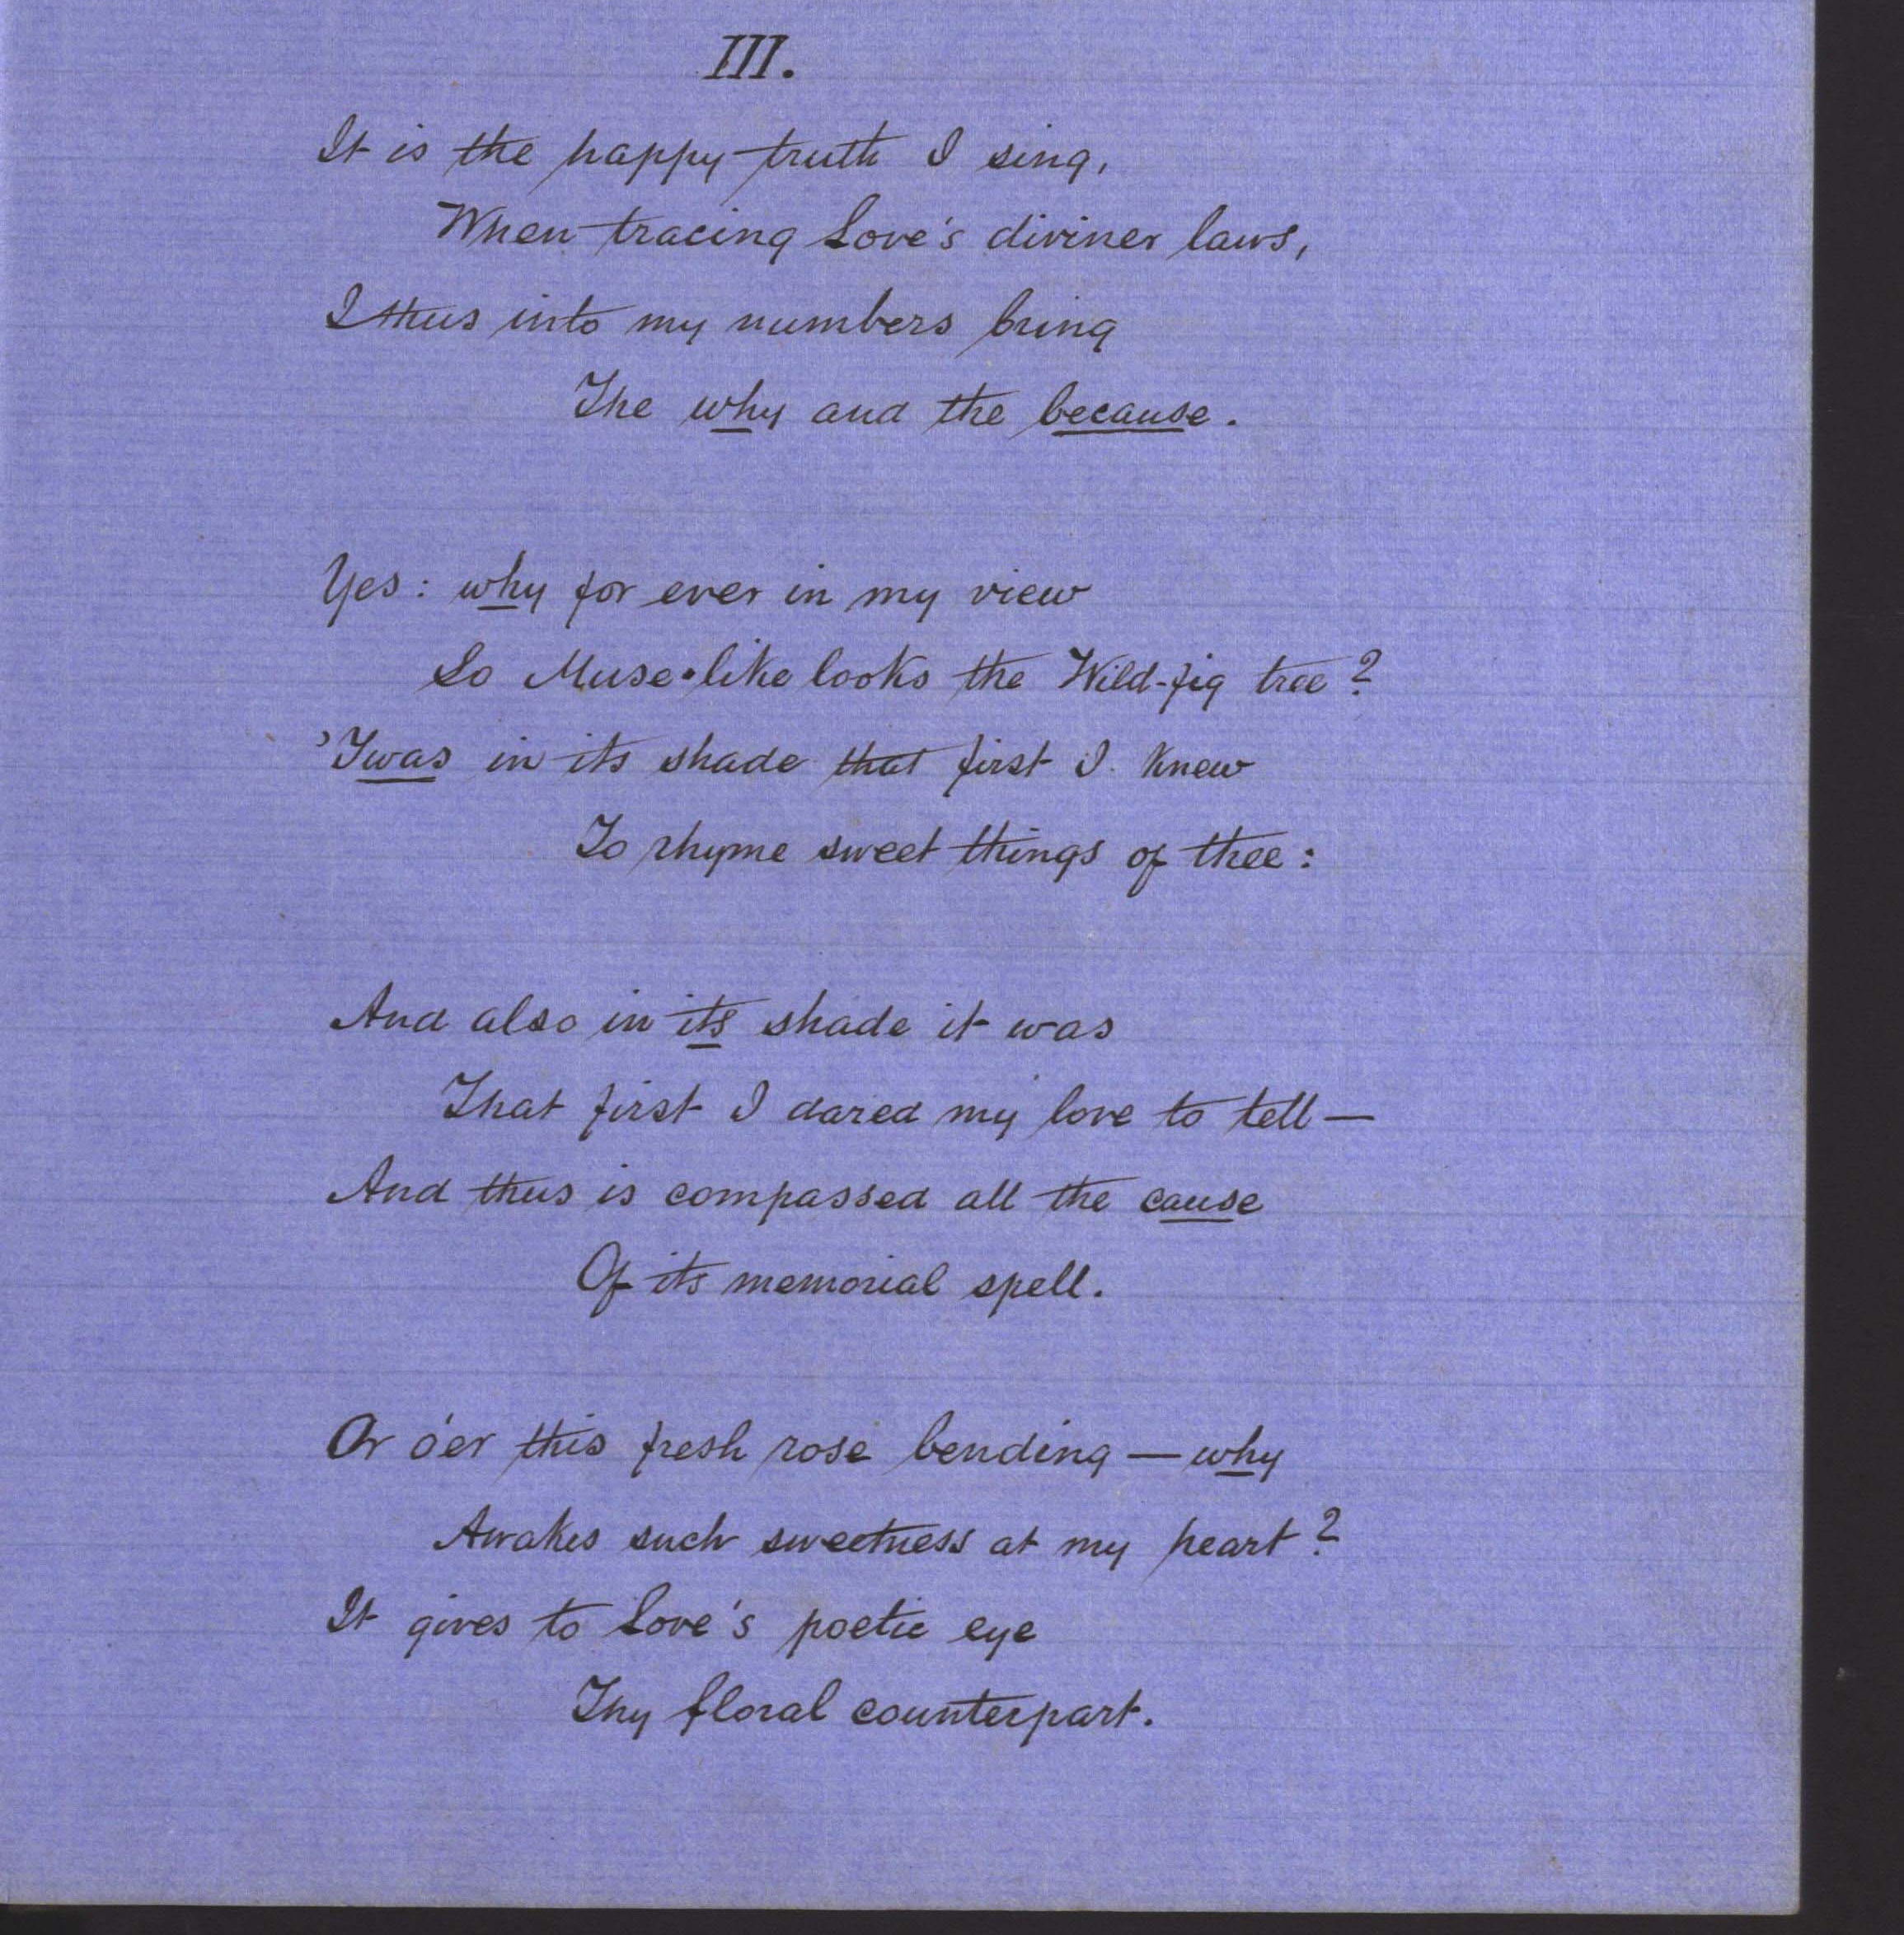 III.
It is the happy truth I sing,
When tracing Love's diviner laws,
I thus into my numbers bring
The why and the because.
Yes: why for ever in my view
So Muse-like looks the Wild-fig tree?
'Twas in its shade that first I knew
To rhyme sweet things of thee:
And also in its shade it was
That first I dared my love to tell—
And thus is compassed all the cause
Of its memorial spell.
Or o'er this fresh rose bending — why
Awakes such sweetness at my heart?
It gives to Love's poetic eye
Thy floral counterpart.